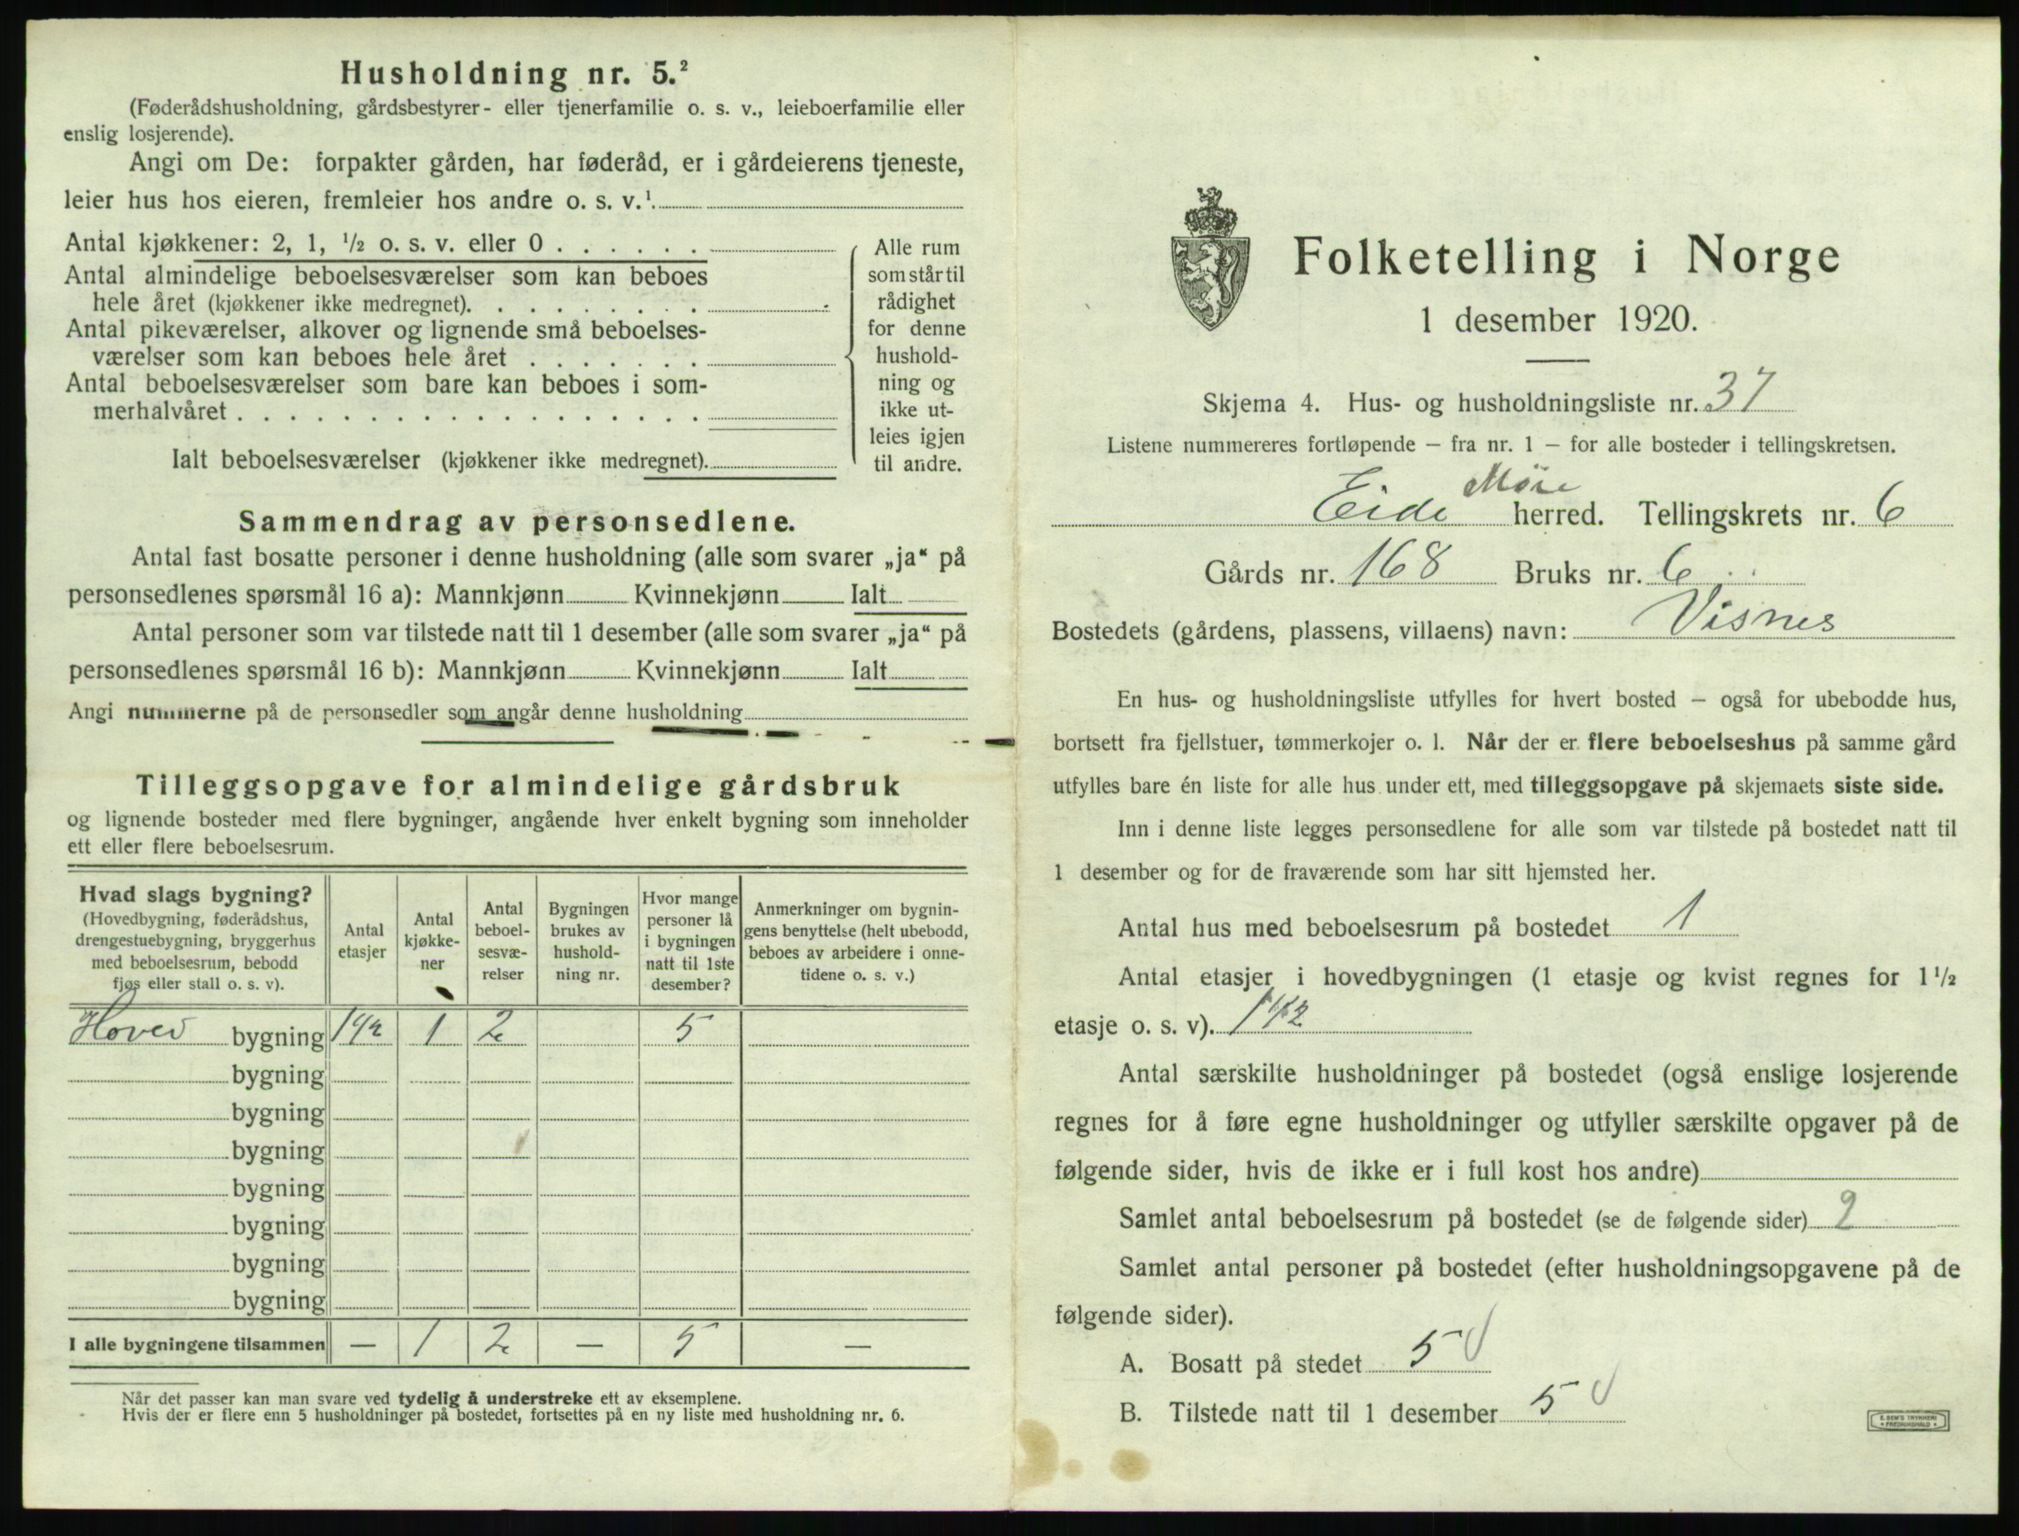 Husholdning nr. 5.²
(Føderådshusholdning, gårdsbestyrer- eller tjenerfamilie o. s. v., leieboerfamilie eller
enslig losjerende).
Angi om De: forpakter gården, har føderåd, er i gårdeierens tjeneste,
leier hus hos eieren, fremleier hos andre o. s. v.¹
Antal kjøkkener: 2, 1, ½ o. s. v. eller 0 . . . . . .
Antal almindelige beboelsesværelser som kan beboes
hele året (kjøkkener ikke medregnet). . . . . . . . .
Antal pikeværelser, alkover og lignende små beboelses-
værelser som kan beboes hele året . . . . . . .
Antal beboelsesværelser som bare kan beboes i som-
merhalvåret . . . . . . . . . . . . . . . . . .
Ialt beboelsesværelser (kjøkkener ikke medregnet).
Alle rum
som står til
rådighet
for denne
hushold-
ning og
ikke ut-
leies igjen
til andre.
Sammendrag av personsedlene.
Antal fast bosatte personer i denne husholdning (alle som svarer „ja“ på
personsedlenes spørsmål 16 a): Mannkjønn Kvinnekjønn Ialt
Antal personer som var tilstede natt til 1 desember (alle som svarer „ja“ på
personsedlenes spørsmål 16 b): Mannkjønn Kvinnekjønn Ialt
Angi nummerne på de personsedler som angår denne husholdning
Tilleggsopgave for almindelige gårdsbruk
og lignende bosteder med flere bygninger, angående hver enkelt bygning som inneholder
ett eller flere beboelsesrum.
Hvad slags bygning?
(Hovedbygning, føderådshus,
drengestuebygning, bryggerhus
med beboelsesrum, bebodd
fjøs eller stall o. s. v).
Antal
etasjer
Antal
kjøkke-
ner
Antal
beboel-
sesvæ-
relser
Bygningen
brukes av
hushold-
ning nr.
Hvor mange
personer lå
i bygningen
natt til 1ste
desember?
Anmerkninger om bygnin-
gens benyttelse (helt ubebodd,
beboes av arbeidere i onne-
tidene o. s. v.)
Hoved bygning 1½ 1 2 5
bygning
bygning
bygning
bygning
bygning
bygning
bygning
I alle bygningene tilsammen — 1 2 — 5 —
Når det passer kan man svare ved tydelig å understreke ett av eksemplene.
Hvis der er flere enn 5 husholdninger på bostedet, fortsettes på en ny liste med husholdning nr. 6.
Folketelling i Norge
1 desember 1920.
Skjema 4. Hus- og husholdningsliste nr. 37
Listene nummereres fortløpende — fra nr. 1 — for alle bosteder i tellingskretsen.
Møre
Eide herred. Tellingskrets nr. 6
Gårds nr. 168 Bruks nr. 6
Bostedets (gårdens, plassens, villaens) navn: Visnes
En hus- og husholdningsliste utfylles for hvert bosted — også for ubebodde hus,
bortsett fra fjellstuer, tømmerkojer o. l. Når der er flere beboelseshus på samme gård
utfylles bare én liste for alle hus under ett, med tilleggsopgave på skjemaets siste side.
Inn i denne liste legges personsedlene for alle som var tilstede på bostedet natt til
1 desember og for de fraværende som har sitt hjemsted her.
Antal hus med beboelsesrum på bostedet 1
Antal etasjer i hovedbygningen (1 etasje og kvist regnes for 1½
etasje o. s. v). 1½
Antal særskilte husholdninger på bostedet (også enslige losjerende
regnes for å føre egne husholdninger og utfyller særskilte opgaver på de
følgende sider, hvis de ikke er i full kost hos andre)
Samlet antal beboelsesrum på bostedet (se de følgende sider) 2
Samlet antal personer på bostedet (efter husholdningsopgavene på de
følgende sider).
A. Bosatt på stedet 5
B. Tilstede natt til 1 desember 5
E. SEM'S TRYKKERI
FREDRIKSHALD